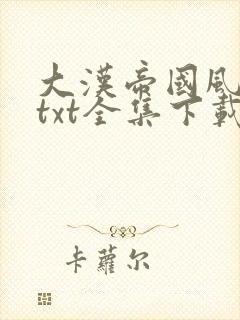 大漢帝國風
txt全集下載
卡蘿尔